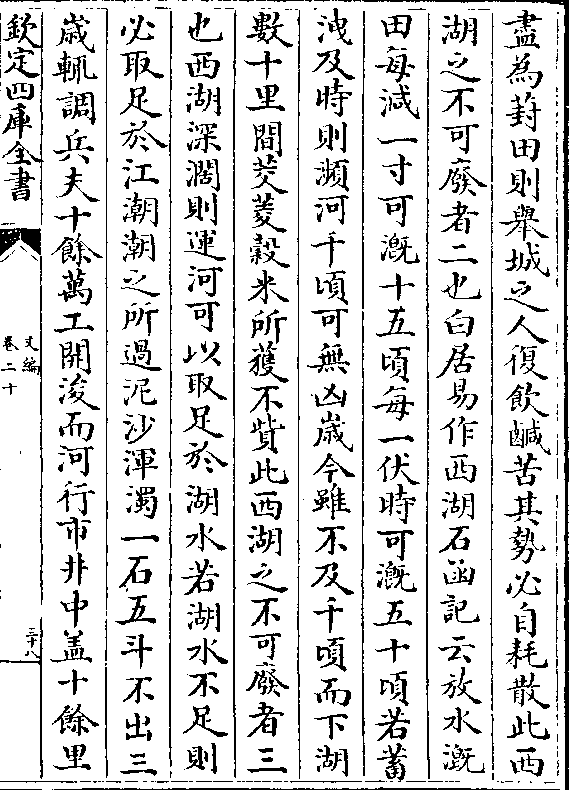 盡為葑田則舉城之人復飲鹹苦其勢必自耗散此西
湖之不可廢者二也白居易作西湖石函記云放水溉
田每減一寸可溉十五頃每一伏時可溉五十頃若蓄
洩及時則瀕河千頃可無凶歲今雖不及千頃而下湖
數十里間茭菱穀米所獲不貲此西湖之不可廢者三
也西湖深濶則運河可以取足於湖水若湖水不足則
必取足於江潮潮之所過泥沙渾濁一石五斗不出三
歲輒調兵夫十餘萬工開浚而河行市井中盖十餘里
欽定四庫全書
文編
卷二十
三十八